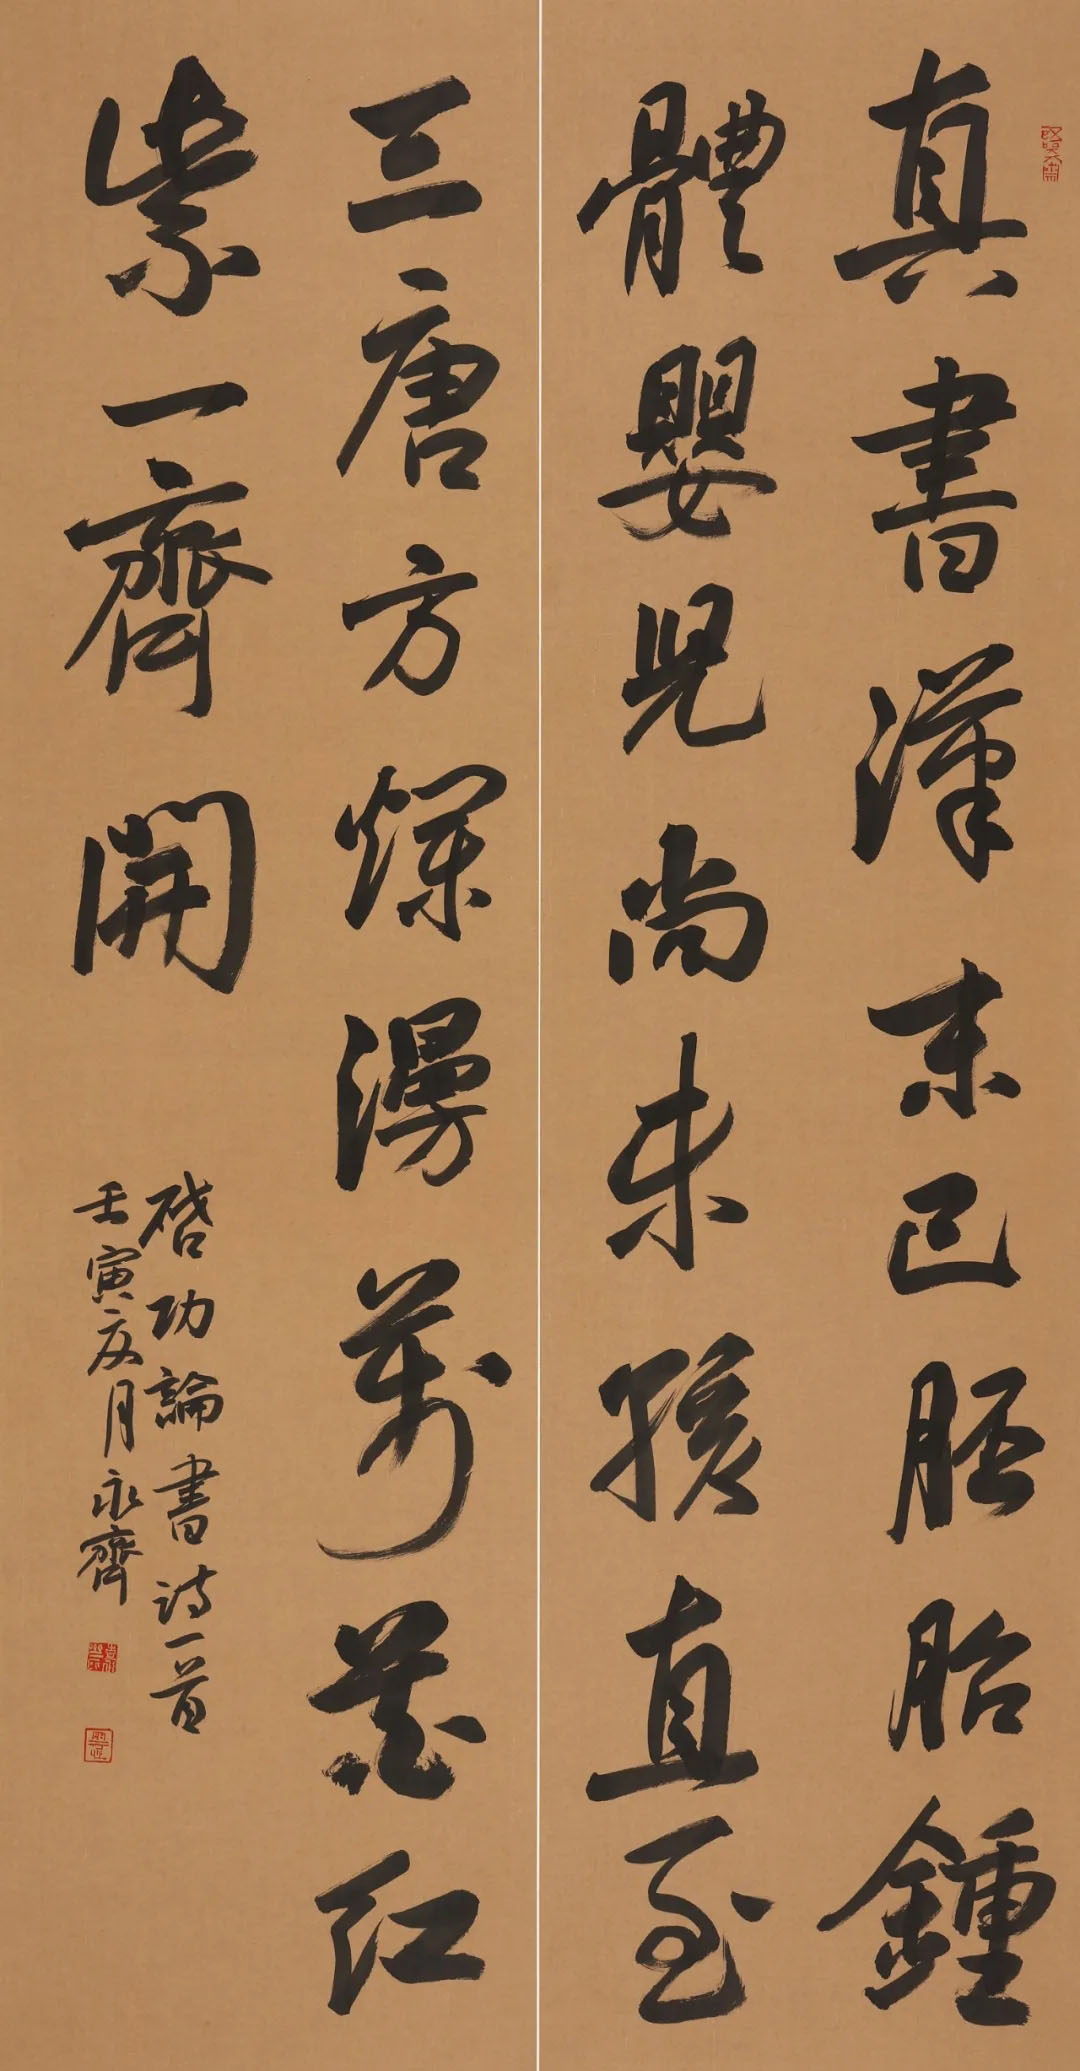 真書漢末已胚胎鍾
體嬰兒尚未孩直至
三唐方爛漫萬花紅
紫一齊開
啓功論書詩一首
壬寅夏月永齊